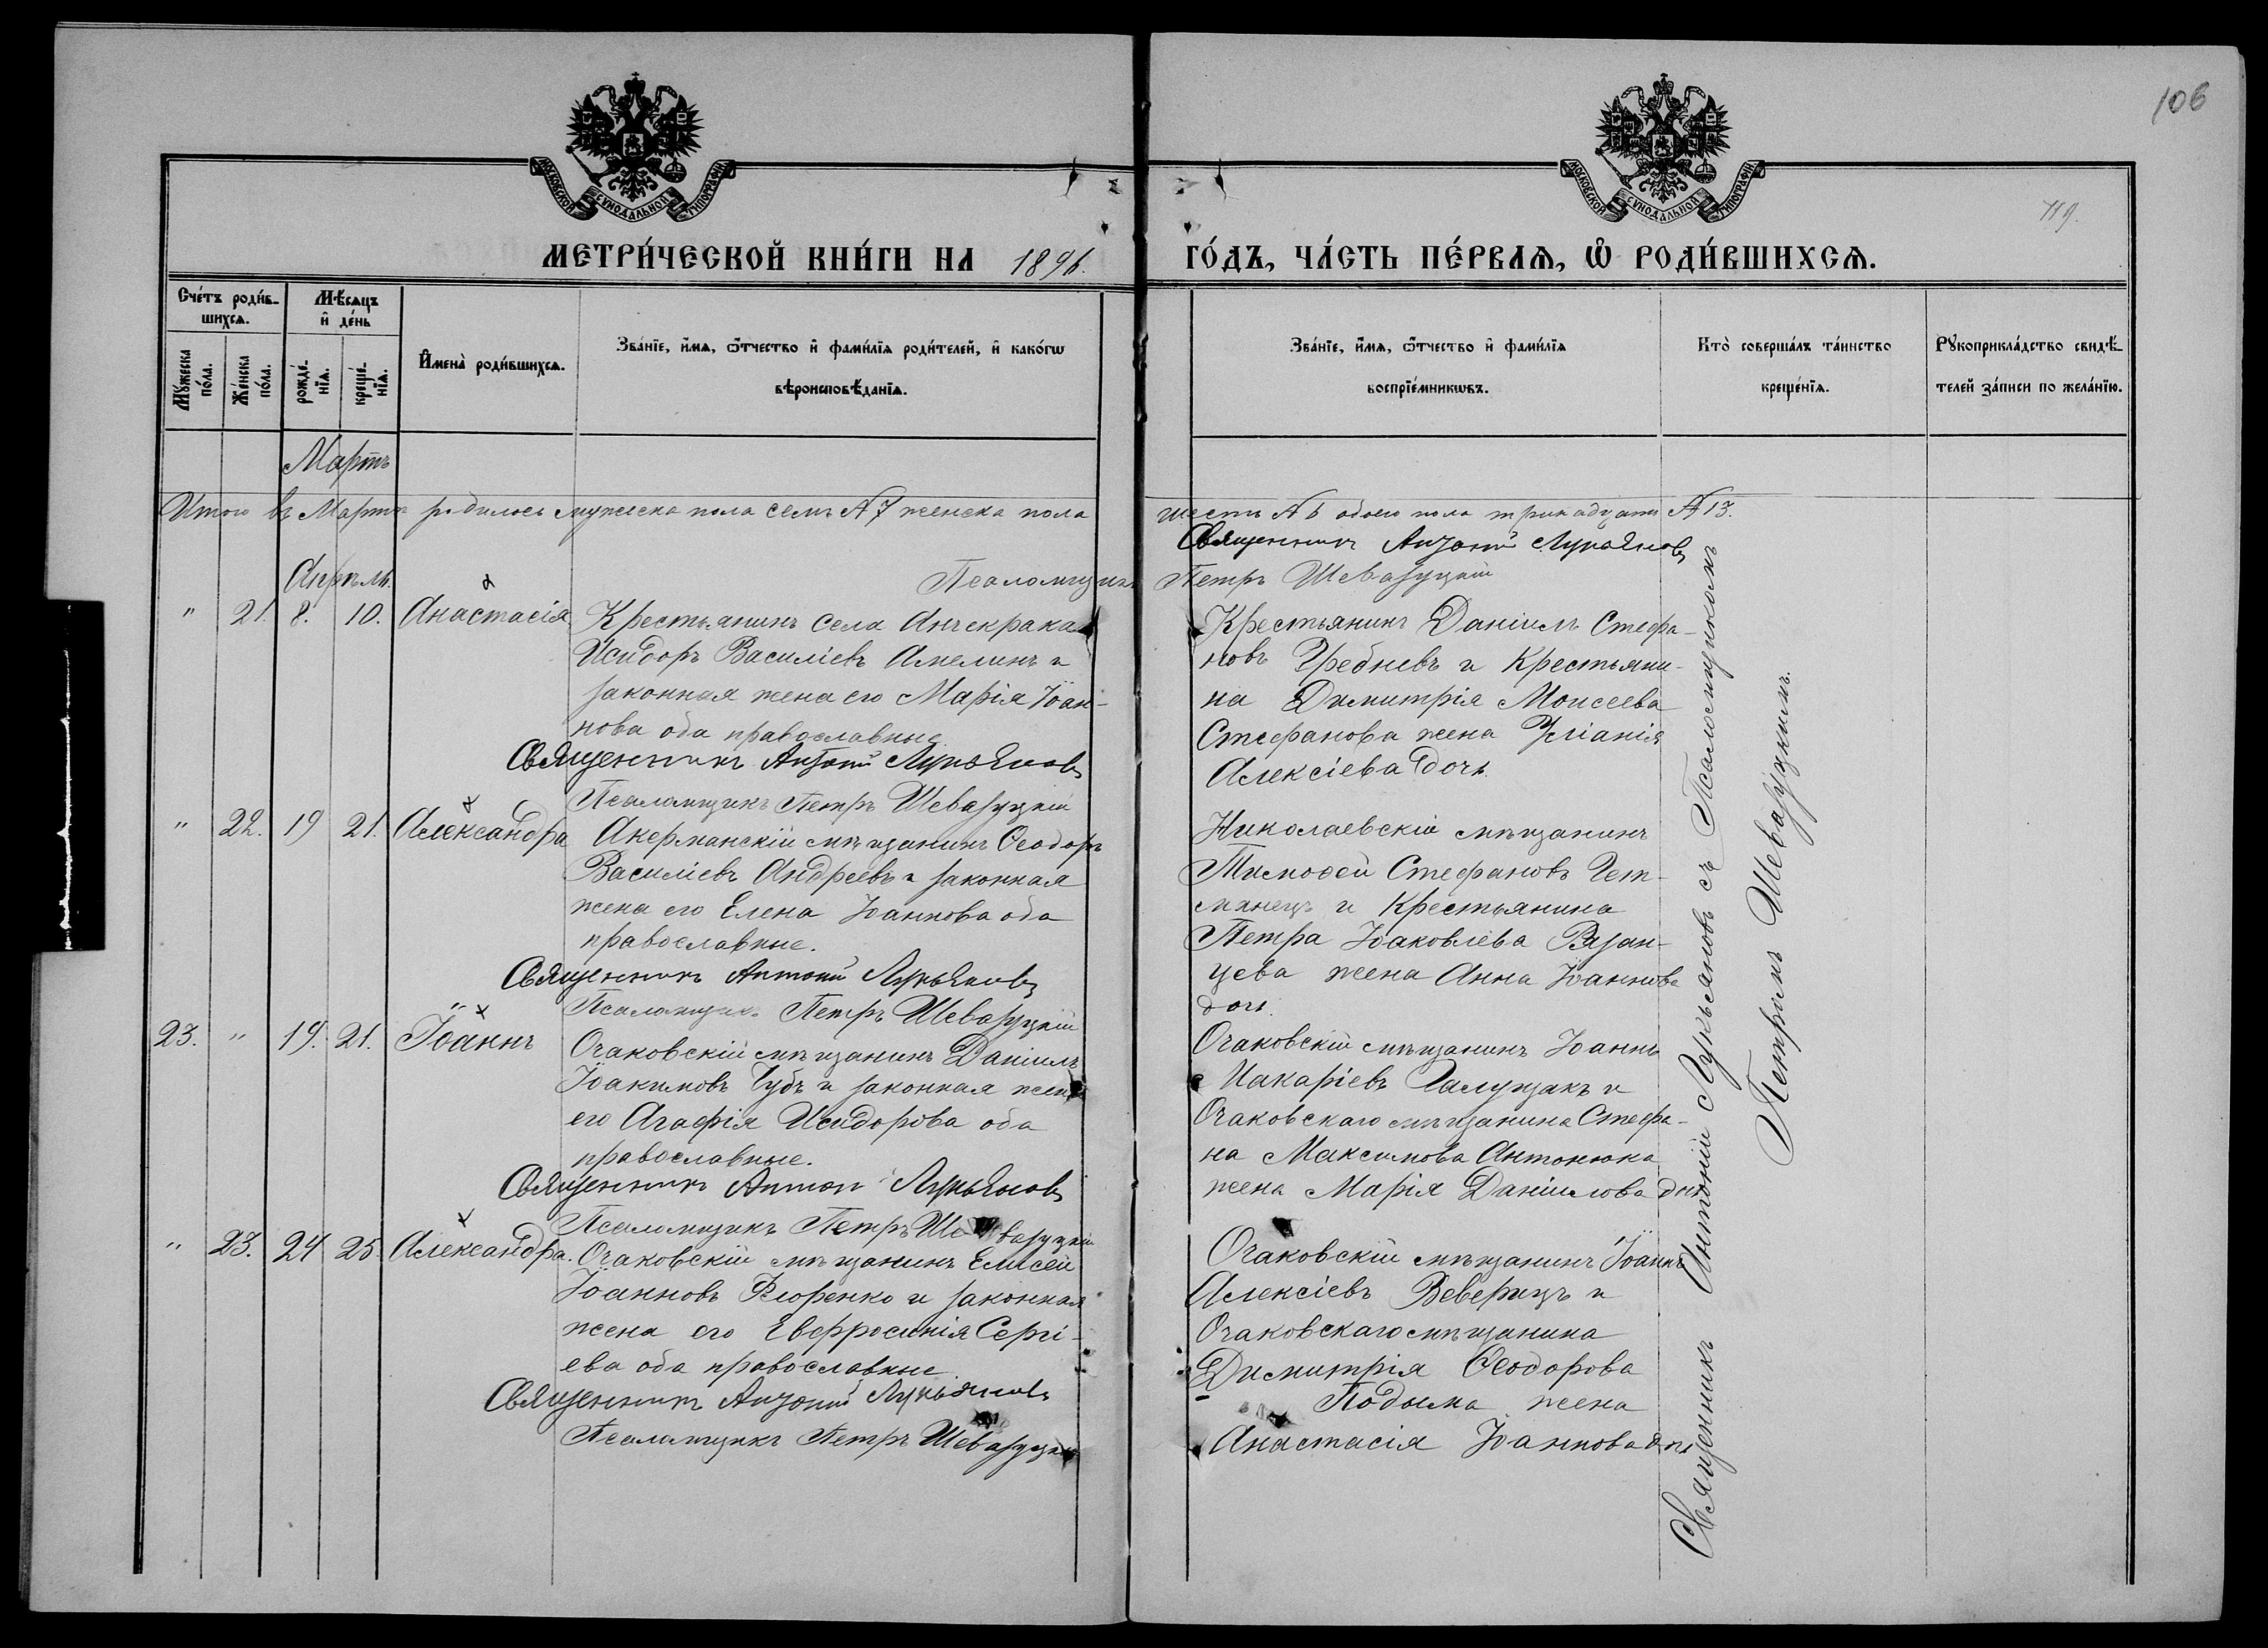 106
119.
МОСКОВСКОЙ СѴНОДАЛЬНОЙ ТИПОГРАФІИ
МОСКОВСКОЙ СѴНОДАЛЬНОЙ ТИПОГРАФІИ
МЕТРИ́ЧЕСКОЙ КНИ́ГИ НА 1896. ГО́ДЪ, ЧА́СТЬ ПЕ́РВАѦ, Ѡ҆ РОДИ́ВШИХСѦ.
Сче́тъ роди́в-
шихсѧ.
Мѣ́сѧцъ
и҆ де́нь
Мꙋжеска по́ла.
Же́нска по́ла.
рожде́-
нїѧ.
креще́-
нїѧ.
И҆мена̀ роди́вшихсѧ.
Зва́нїе, и҆́мѧ, ѻ҆́тчество и҆ фами́лїѧ роди́телей, и҆ како́гѡ
вѣроисповѣ́данїѧ.
Зва́нїе, и҆́мѧ, ѻ҆́тчество и҆ фами́лїѧ
воспрїе́мникѡвъ.
Кто̀ соверша́лъ та́инство
креще́нїѧ.
Рꙋкоприкла́дство свидѣ́-
телей за́писи по жела́нїю.
Мартъ
Итого въ Мартѣ родилось мужеска пола семь № 7 женска пола шесть № 6 обоего пола тринадцать № 13.
Священникъ Антоній Лукьяновъ
Апрѣль.
Псаломщикъ Петръ Шевазуцкій
" 21. 8. 10. Анастасія
Крестьянинъ села Анчекрака
Исидоръ Василіевъ Амелинъ и
законная жена его Марія Іоан-
нова оба православные
Священникъ Антоній Лукьяновъ
Псаломщикъ Петръ Шевазуцкій
Крестьянинъ Даніилъ Стефа-
новъ Гребневъ и Крестьяни-
на Димитрія Моисеева
Стефанова жена Уліанія
Алексіева дочь.
" 22. 19 21. Александра
Акерманскій мѣщанинъ Ѳеодоръ
Василіевъ Андреевъ и законная
жена его Елена Іоаннова оба
православные.
Священникъ Антоній Лукьяновъ
Псаломщикъ Петръ Шевазуцкій
Николаевскій мѣщанинъ
Тимоѳей Стефановъ Гет-
манецъ и Крестьянина
Петра Іоаковлева Рязан-
цева жена Анна Іоаннова
дочь.
23. " 19. 21. Іоаннъ
Очаковскій мѣщанинъ Даніилъ
Іоакимовъ Губъ и законная жена
его Агафія Исидорова оба
православные.
Священникъ Антоній Лукьяновъ
Псаломщикъ Петръ Шевазуцкій
Очаковскій мѣщанинъ Іоаннъ
Макаріевъ Галущакъ и
Очаковскаго мѣщанина Стефа-
на Максимова Антонюка
жена Марія Даніилова дочь
" 23. 24 25. Александра.
Очаковскій мѣщанинъ Елисей
Іоанновъ Флоренко и законная
жена его Евфросинія Сергі-
ева оба православные
Священникъ Антоній Лукьяновъ
Псаломщикъ Петръ Шевазуцкій
Очаковскій мѣщанинъ Іоаннъ
Алексіевъ Веверицъ и
Очаковскаго мѣщанина
Димитрія Ѳеодорова
Подыма жена
Анастасія Іоаннова дочь
Священникъ Антоній Лукьяновъ съ Псаломщикомъ
Петромъ Шевазуцкимъ.